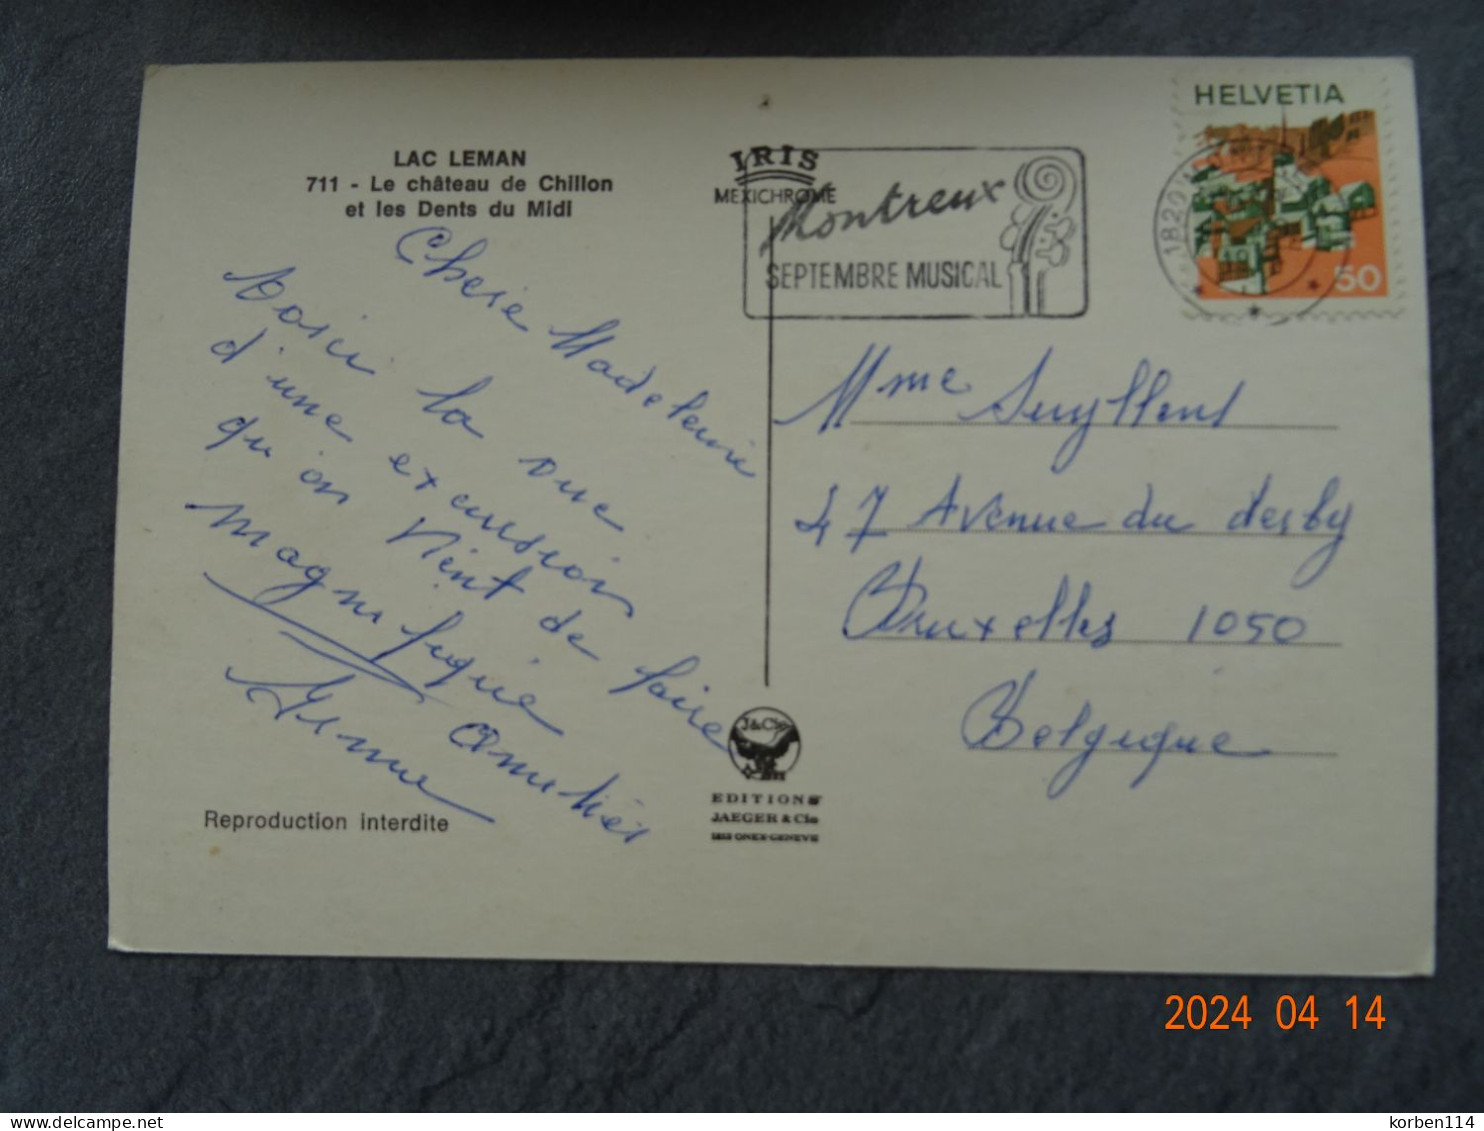 HELVETIA
50
1820
LAC LEMAN
711 - Le château de Chillon
et les Dents du Midi
IRIS
MEXICHROME
Montreux
SEPTEMBRE MUSICAL
Cherie Madeleine
Voici la vue
d'une excursion
qu'on vient de faire
magnifique
Amitiés
Mme Suyllens
47 Avenue du Derby
Bruxelles 1050
Belgique
J&Cie
EDITIONS
JAEGER & Cie
1213 ONEX-GENEVE
Reproduction interdite
2024 04 14
korben114